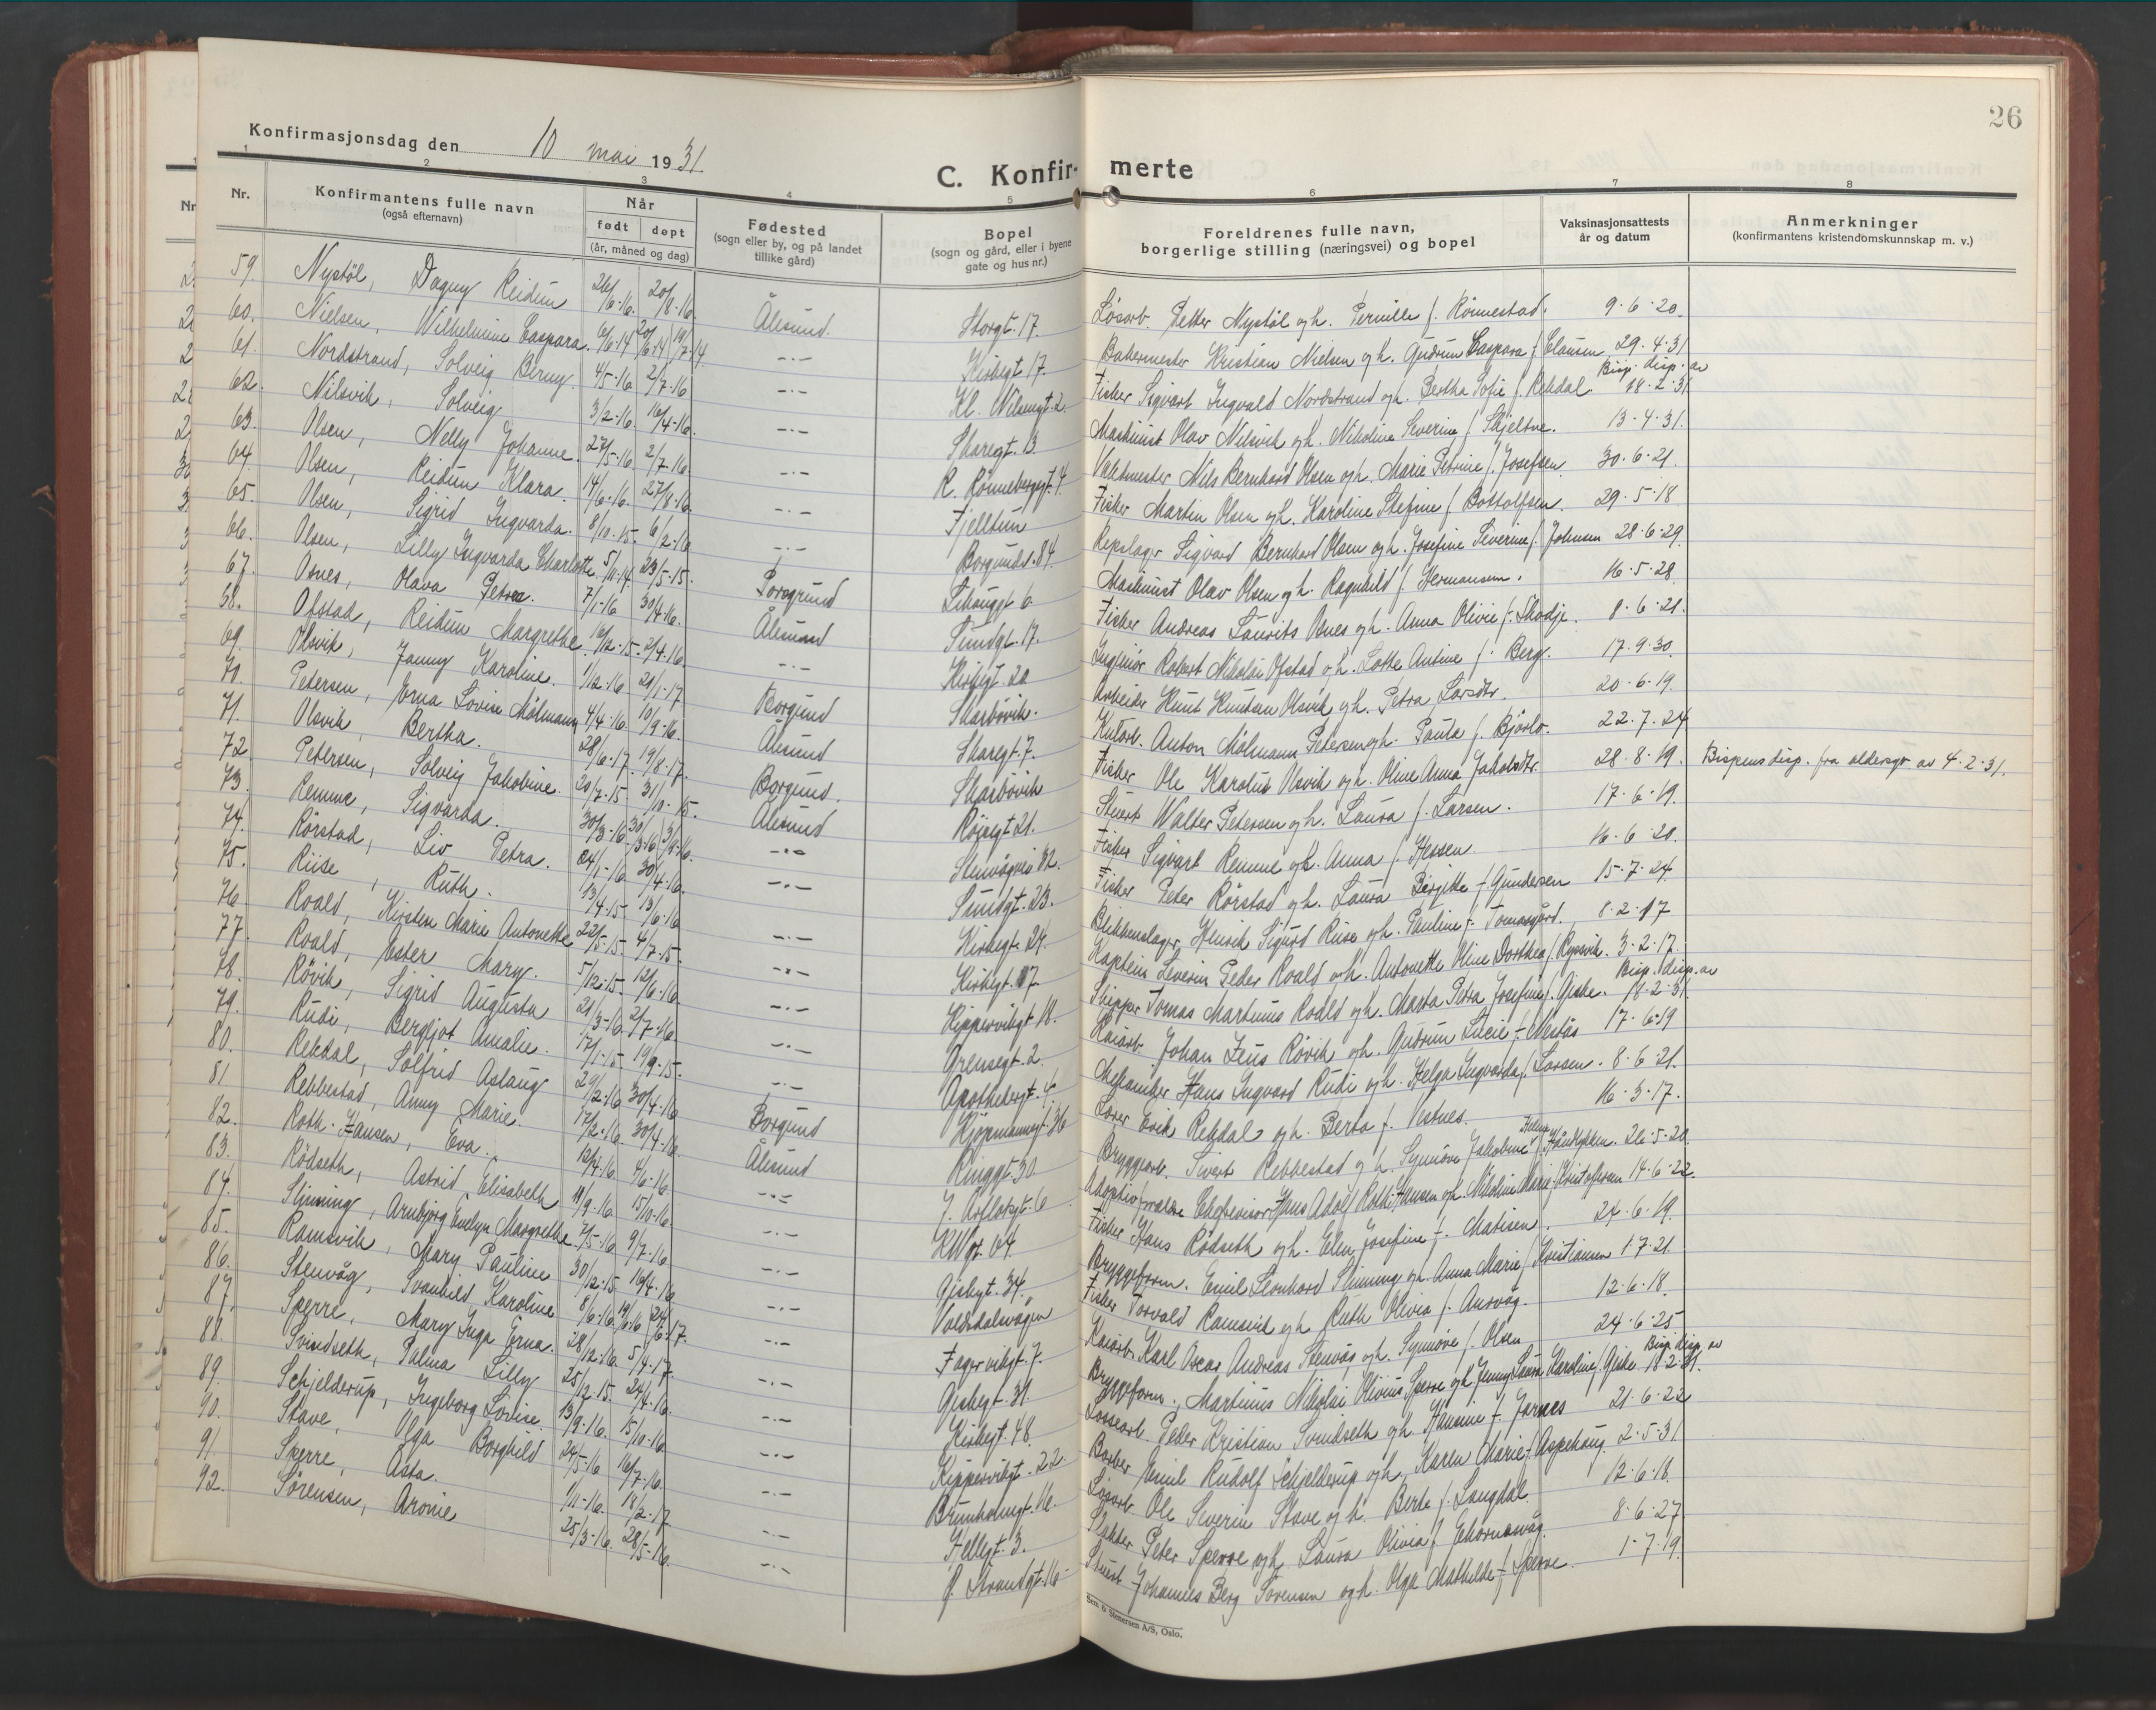 26
Konfirmasjonsdag den 10 mai 1931.
C. Konfir- merte
1 2 3 4 5 6 7 8
Nr. Konfirmantens fulle navn (også efternavn) Når født døpt (år, måned og dag) Fødested (sogn eller by, og på landet tillike gård) Bopel (sogn og gård, eller i byene gate og hus nr.) Foreldrenes fulle navn, borgerlige stilling (næringsvei) og bopel Vaksinasjonsattests år og datum Anmerkninger (konfirmantens kristendomskunnskap m. v.)
59. Nystøl, Dagny Reidun 26/6-16. 20/8-16. Ålesund. Storgt. 17. Løsarb. Petter Nystøl og h. Pernille f. Rønnestad. 9-6-20.
60. Nielsen, Wilhelmine Caspara. 6/6-14 20/6-14 19/7-14. -.- Kirkegt 17. Bakermester Kristian Nielsen og h. Gudrun Caspara f. Clausen 29-4-31
61. Nordstrand, Solveig Berny. 4/5-16. 2/7-16 -.- Kl. Nilsengt. 2. Fisker Sigvart Ingvald Nordstrand og h. Bertha Sofie f. Rekdal Bisp. disp. av 18-2-31
62. Nilsvik, Solveig 3/2-16. 16/4-16. -.- Skaregt. 13. Maskinist Olav Nilsvik og h. Nikoline Severine f. Skjeltne. 13-4-31.
63. Olsen, Nelly Johanne. 27/5-16. 2/7-16. -.- R. Rønnebergsgt. 4. Vaktmester Nils Bernhard Olsen og h. Marie Petrine f. Josefsen 30-6-21.
64. Olsen, Reidun Klara. 14/6-16. 27/8-16. -.- Fjelltun Fisker Martin Olsen og h. Karoline Stefine f. Bottolfsen. 29-5-18
65. Olsen, Sigrid Ingvarda. 8/10-15. 6/2-16 -.- Borgundv. 84. Repslager Sigvard Bernhard Olsen og h. Josefine Severine f. Johnsen 28-6-29.
66. Olsen, Lilly Ingvarda Charlotte. 5/11-14. 23/5-15. Porsgrund Lihauggt. 6. Maskinist Olav Olsen og h. Ragnhild f. Hermansen. 16-5-28.
67. Osnes, Olava Petrea. 7/1-16 30/4-16. Ålesund Sundgt. 17. Fisker Andreas Laurits Osnes og h. Anna Olivie f. Skodje. 8-6-21.
68. Ofstad, Reidun Margrethe. 16/12-15. 2/4-16. -.- Kirkegt. 20 Ingeniør Robert Nikolai Ofstad og h. Lotte Antine f. Berg. 17-9-30.
69. Olsvik, Jenny Karoline. 1/12-16 21/1-17 Borgund Skarbøvik. Arbeider Knut Knutsen Olsvik og h. Petra Larsdtr. 20-6-19.
70. Petersen, Erna Lovise Mølmann 4/4-16. 10/9-16. Ålesund Skaregt. 7. Kularb. Anton Mølmann Petersen og h. Paula f. Bjørlo. 22-7-24
71. Olsvik, Bertha. 28/6-17. 19/8-17. Borgund. Skarbøvik Fisker Ole Karolus Olsvik og h. Oline Anna Jakobsdtr. 28-8-19. Bispens disp. fra aldersgr. av 4-2-31.
72. Petersen, Solveig Jakobine. 20/7-15. 31/10-15. Ålesund Røysegt 21. Stuert Walter Petersen og h. Laura f. Larsen. 17-6-19.
73. Remme, Sigvarda. 30/3-16 30/3-16 3/9-16. -.- Stenvågvei 32. Fisker Sigvart Remme og h. Anna f. Hessen 16-6-20.
74. Rørstad, Liv Petra. 24/1-16 30/4-16. -.- Sundgt. 23. Fisker Peter Rørstad og h. Laura Birgitte f. Gundersen 15-7-24.
75. Riise, Ruth. 13/14-15. 13/6-16 -.- Kirkegt. 24. Blikkenslager Henrik Sigurd Riise og h. Pauline f. Tomasgård. 8-2-17
76. Roald, Kirsten Marie Antonette 22/5-15. 4/7-15. -.- Kirkegt. 17. Kaptein Severin Peder Roald og h. Antonette Oline Dorthea f. Rysvik. 3-2-17.
77. Roald, Ester Mary. 5/12-15. 12/6-16 -.- Kipperviksgt 18. Skipper Tomas Martinus Roald og h. Marta Petra Josefine f. Giske. Bisp. disp. av 18-2-31.
78. Røvik, Sigrid Augusta 21/3-16. 2/7-16. -.- Grensegt. 2 Kaiarb. Johan Zeus Røvik og h. Gudrun Lucie f. Nesås 17-6-19
79. Rudi, Bergljot Amalie. 17/1-15. 19/9-15. -.- Apothekergt. 4. Mekaniker Hans Ingvard Rudi og h. Helga Ingvarda f. Larsen. 8-6-21.
80. Rekdal, Solfrid Aslaug 29/2-16 30/4-16 Borgund Kjøpmannsgt. 36 Lærer Erik Rekdal og h. Berta f. Vestnes. 16-3-17.
81. Rebbestad, Anny Marie. 17/2-16. 30/4-16. Ålesund Ringgt. 30 Bryggearb. Sivert Rebbestad og h. Synnøve Jakobine f. Håndlykken. 26-5-20.
82. Roth-Hansen, Eva. 12/4-16. 4/6-16. -.- J. Asflotsgt. 6 Adoptivforeldre Chefrevisor Hans Adolf Roth-Hansen og h. Nikoline Marie f. Kristofersen 14-6-22.
83. Rødseth, Astrid Elisabeth 11/9-16. 15/10-16. -.- KWgt. 64. Fisker Hans Rødseth og h. Elen Josefine f. Matisen. 24-6-19.
84. Slinning, Arnbjørg Evelyn Margrethe. 7/5-16. 9/7-16. -.- Giskegt. 34. Bryggeform. Emil Leonhard Slinning og h. Anna Marie f. Kristiansen 1-7-21.
85. Ramsvik, Mary Pauline 30/12-15 16/4-16 -.- Voldsdalsvågen Fisker Torvald Ramsvik og h. Ruth Olivia f. Aurvåg. 12-6-18.
86. Stenvåg, Svanhild Karoline 8/6-16. 19/6-16 24/6-17. -.- Fagerviksgt. 7. Kaiarb. Karl Oscar Andreas Stenvåg og h. Synnøve f. Olsen 24-6-25
87. Sperre, Mary Inga Erna. 28/12-16. 5/4-17. -.- Giskegt. 31. Bryggeform. Martinus Nikolai Olivius Sperre og h. Jenny Laura Karoline f. Giske Bisp. disp. av 18-2-31.
88. Svindseth, Palma Lilly 25/12-15. 24/4-16. -.- Kirkegt. 48. Lossearb. Peder Kristian Svindseth og h. Hansine f. Jarnes 21-6-22
89. Schjelderup, Ingeborg Lovise. 13/9-16. 15/10-16. -.- Kipperviksgt. 22. Barber Emil Rudolf Schjelderup og h. Karen Marie f. Aspehaug. 2-5-31
90. Stave, Olga Borghild 24/5-16 16/7-16. -.- Brunholmgt. 16. Løsarb. Ole Severin Stave og h. Berte f. Langdal. 12-6-18.
91. Sperre, Asta. 1/11-16. 18/2-17 -.- Hellegt. 3. Slakter Peter Sperre og h. Laura Olivia f. 8-6-27
92. Sørensen, Aronie 25/3-16. 28/5-16. -.- Ø. Strandgt. 16 Stuert Johannes Berg Sørensen og h. Olga Mathilde f. Sperre. 1-7-19.
Sem & Stenersen A/S, Oslo.